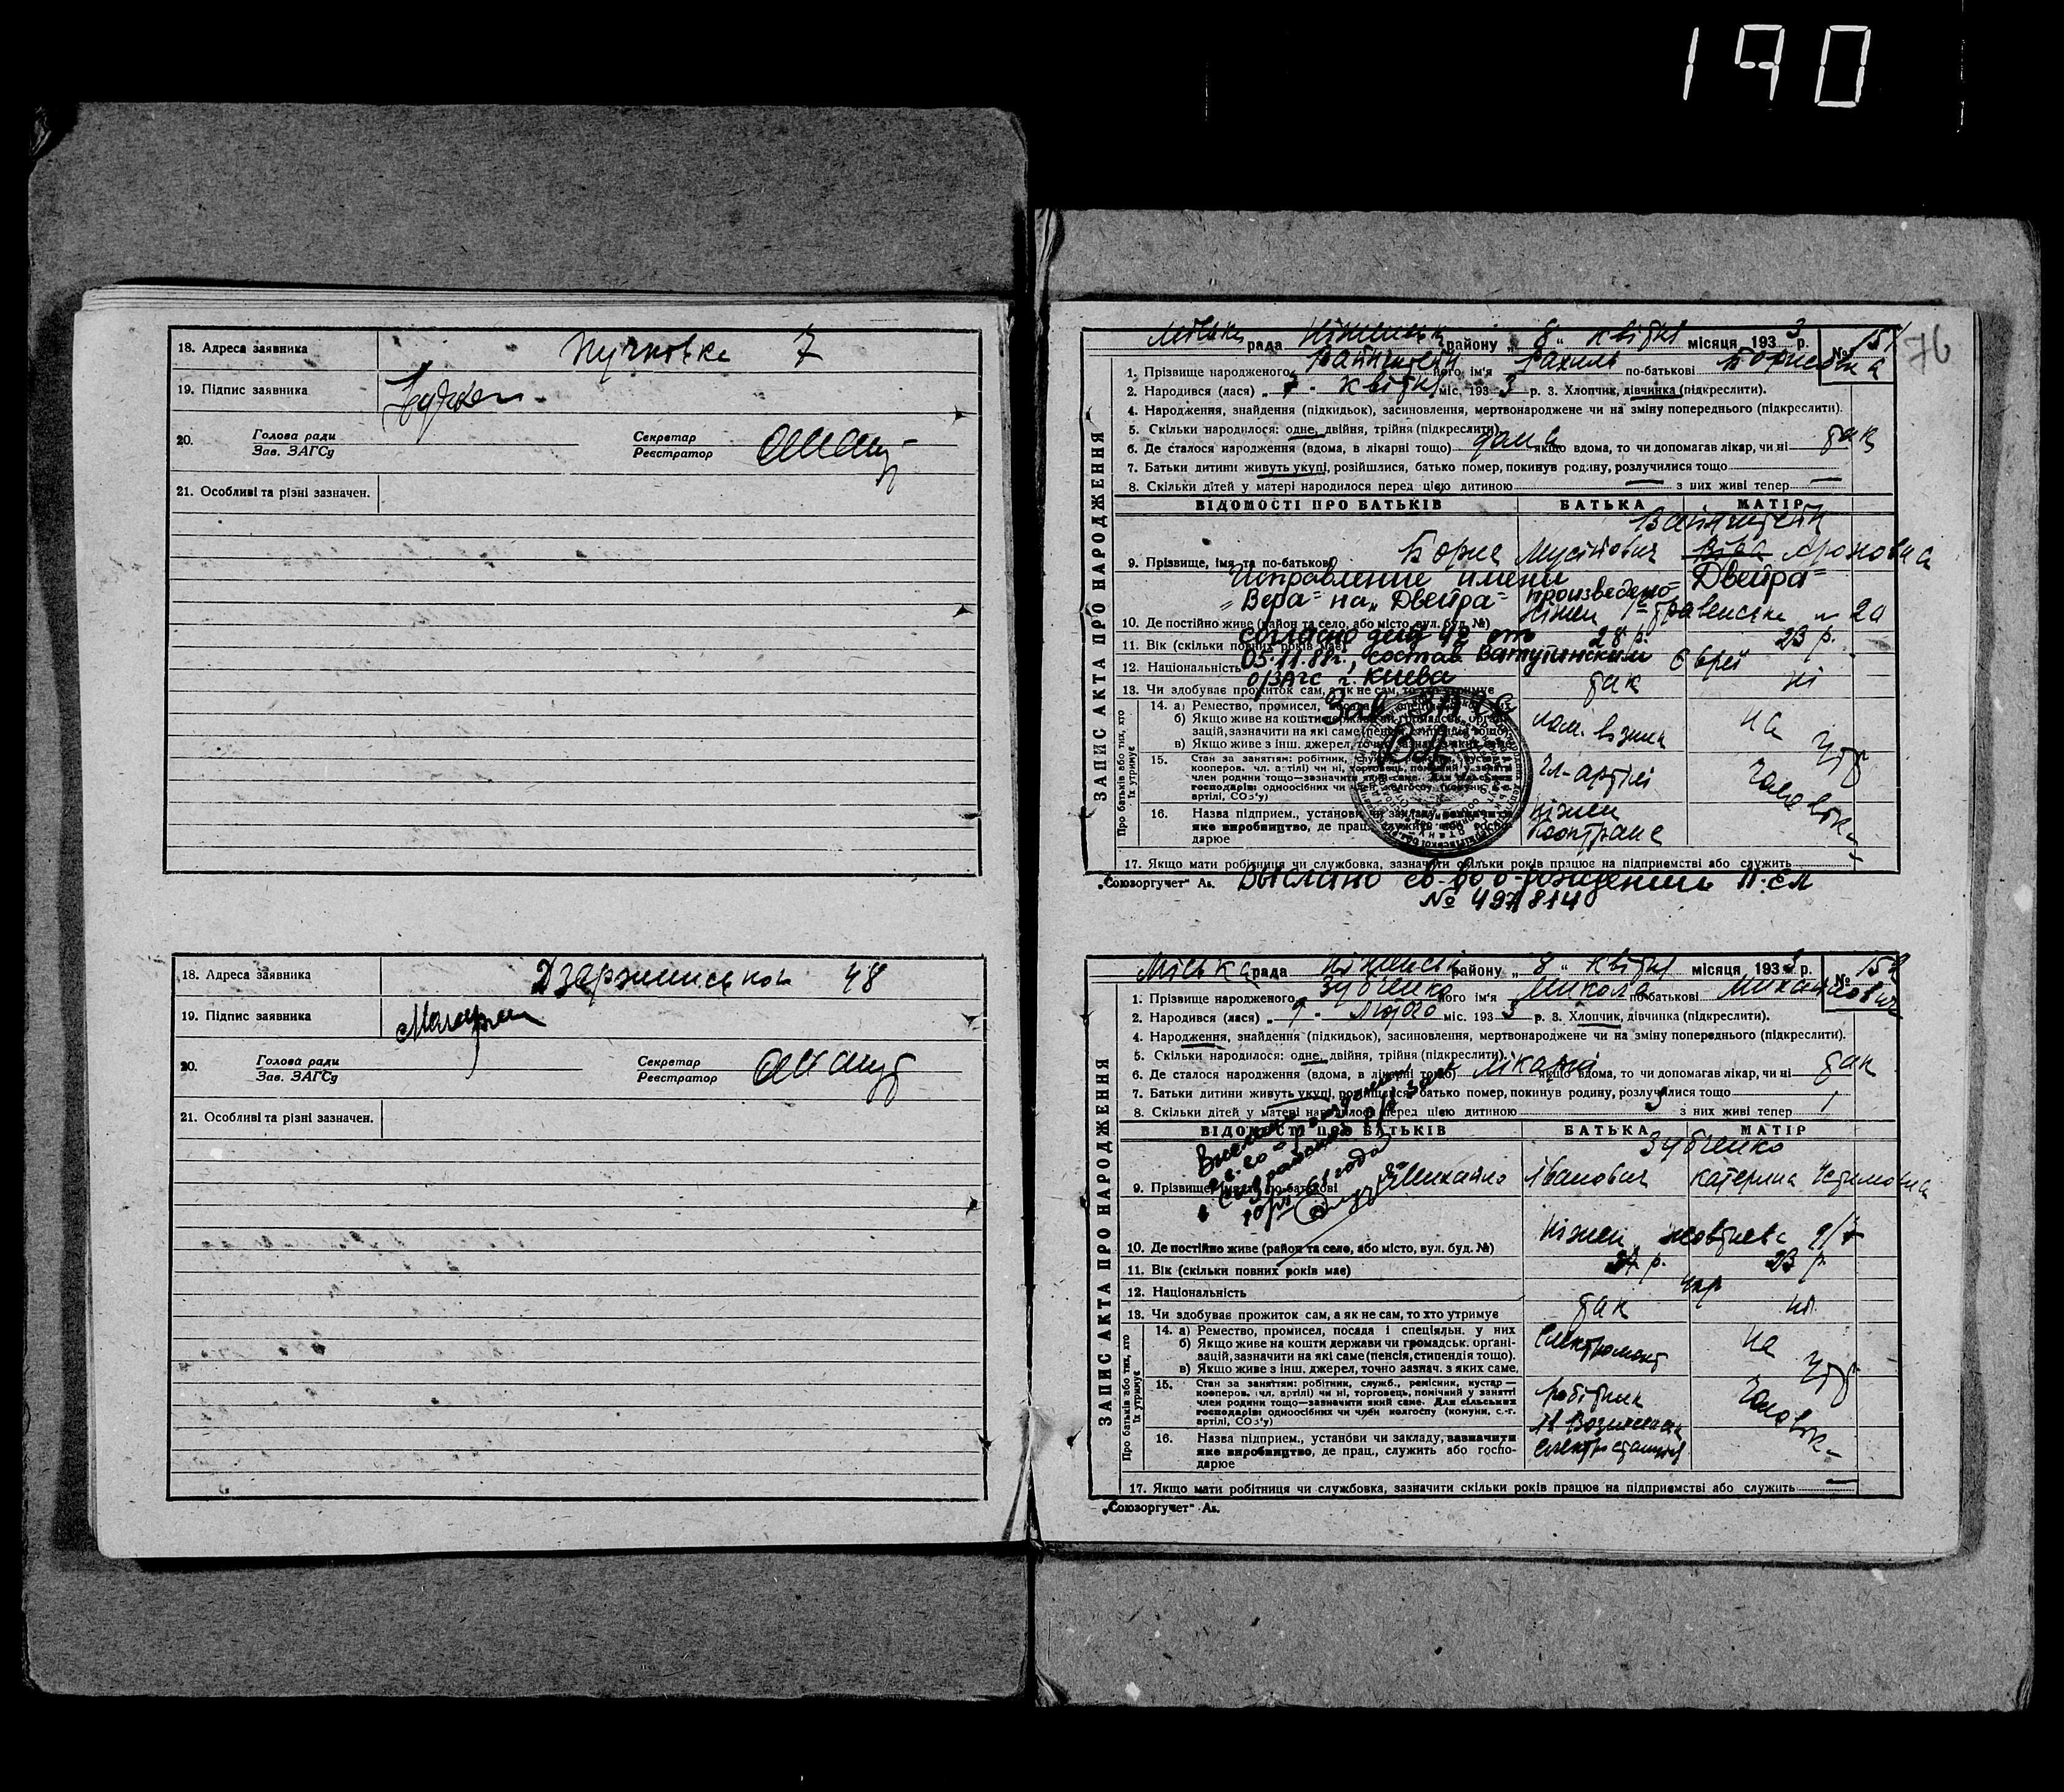 190
18. Адреса заявника Пучковка 7
19. Підпис заявника
20. Голова ради Секретар
Зав. ЗАГСу Реєстратор
21. Особливі та різні зазначен.
18. Адреса заявника 48
19. Підпис заявника
20. Голова ради Секретар
Зав. ЗАГСу Реєстратор
21. Особливі та різні зазначен.
76
ЗАПИС АКТА ПРО НАРОДЖЕННЯ
Міська рада Ніженськ району „ 8 “ квітня місяця 1933 р. № 151
1. Прізвище народженого Вайнштейн його ім'я Рахиль по-батькові Борисовна
2. Народився (лася) „ 7 - квітня міс. 193 3 р. 3. Хлопчик, дівчинка (підкреслити).
4. Народження, знайдення (підкидьок), засиновлення, мертвонароджене чи на зміну попереднього (підкреслити).
5. Скільки народилося: одне, двійня, трійня (підкреслити).
6. Де сталося народження (вдома, в лікарні тощо) дома якщо вдома, то чи допомагав лікар, чи ні так
7. Батьки дитини живуть укупі, розійшлися, батько помер, покинув родину, розлучилися тощо
8. Скільки дітей у матері народилося перед цією дитиною — з них живі тепер —
ВІДОМОСТІ ПРО БАТЬКІВ БАТЬКА МАТІР
Вайнштейн
9. Прізвище, імя та по-батькові Борис Мусійович Віва Ароновна
Исправление имени Двейра"
„Вера" на „Двейра" произведено
10. Де постійно живе (район та село, або місто, вул. буд. №) Ніжен 20
согласно 92 от
11. Вік (скільки повних років має) 28 р. 23 р.
05.11.88г., состав Ватутинским
12. Національність Євреї
о/ЗАГС г. Киева
13. Чи здобуває прожиток сам, а як не сам, то хто утримує так ні
Зав ЗАГС
Про батьків або тих, хто їх утримує
14. а) Ремество, промисел, посада і спеціяльн. у них
б) Якщо живе на кошти держави чи громадськ. органі-
зацій, зазначити на які саме (пенсія, стипендія тощо). на утр
в) Якщо живе з інш. джерел, точно зазнач. з яких саме.
15. Стан за заняттям: робітник, служб., ремісник, кустар—
кооперов. чл. артілі) чи ні, торговець, помічний у занятті Чл-артілі Чолов
член родини тощо—зазначити який саме. Для сільських
господарів: одноосібних чи член колгоспу (комуни, с.-г.
артілі, СОз'у)
16. Назва підприєм., установи чи закладу, зазначити Ніжен
яке виробництво, де прац., служить або госпо-
дарює
17. Якщо мати робітниця чи службовка, зазначити скільки років працює на підприємстві або служить
„Союзоргучет“ Ав. Выслано св-во о рождении II-ЕЛ
№ 497814
ЗАПИС АКТА ПРО НАРОДЖЕННЯ
Міська рада Ніженськ району „ 8 “ квітня місяця 1933 р. № 152
1. Прізвище народженого Зубченко його ім'я Микола по-батькові Михайлович
2. Народився (лася) „ 9 - Лютого міс. 193 3 р. 3. Хлопчик, дівчинка (підкреслити).
4. Народження, знайдення (підкидьок), засиновлення, мертвонароджене чи на зміну попереднього (підкреслити).
5. Скільки народилося: одне, двійня, трійня (підкреслити).
6. Де сталося народження (вдома, в лікарні тощо) лікарні якщо вдома, то чи допомагав лікар, чи ні так
7. Батьки дитини живуть укупі, розійшлися, батько помер, покинув родину, розлучилися тощо
8. Скільки дітей у матері народилося перед цією дитиною з них живі тепер 1
ВІДОМОСТІ ПРО БАТЬКІВ БАТЬКА МАТІР
Зубченко
9. Прізвище, імя та по-батькові Михайло Іванович Катерина
61 года
10. Де постійно живе (район та село, або місто, вул. буд. №) Ніжен
11. Вік (скільки повних років має) 23 р.
12. Національність Укр
13. Чи здобуває прожиток сам, а як не сам, то хто утримує так ні
Про батьків або тих, хто їх утримує
14. а) Ремество, промисел, посада і спеціяльн. у них Електромонт
б) Якщо живе на кошти держави чи громадськ. органі-
зацій, зазначити на які саме (пенсія, стипендія тощо). на утр
в) Якщо живе з інш. джерел, точно зазнач. з яких саме.
15. Стан за заняттям: робітник, служб., ремісник, кустар—
кооперов. чл. артілі) чи ні, торговець, помічний у занятті робітник Чолов
член родини тощо—зазначити який саме. Для сільських
господарів: одноосібних чи член колгоспу (комуни, с.-г.
артілі, СОз'у)
16. Назва підприєм., установи чи закладу, зазначити
яке виробництво, де прац., служить або госпо-
дарює
17. Якщо мати робітниця чи службовка, зазначити скільки років працює на підприємстві або служить —
„Союзоргучет“ Ав.